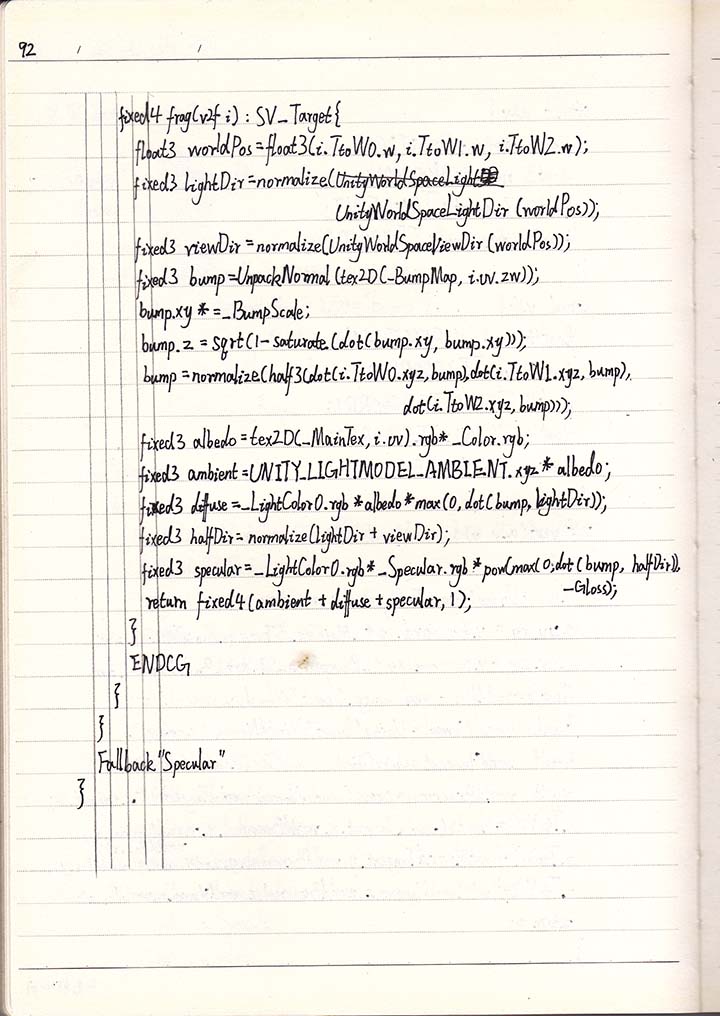 92 / /
fixed4 frag(v2f i) : SV_Target{
float3 worldPos=float3(i.TtoW0.w, i.TtoW1.w, i.TtoW2.w);
fixed3 lightDir=normalize(UnityWorldSpaceLight
UnityWorldSpaceLightDir(worldPos));
fixed3 viewDir=normalize(UnityWorldSpaceViewDir(worldPos));
fixed3 bump=UnpackNormal(tex2D(_BumpMap, i.uv.zw));
bump.xy *=_BumpScale;
bump.z = sqrt(1-saturate(dot(bump.xy, bump.xy)));
bump=normalize(half3(dot(i.TtoW0.xyz,bump),dot(i.TtoW1.xyz, bump),
dot(i.TtoW2.xyz,bump)));
fixed3 albedo=tex2D(_MainTex, i.uv).rgb*_Color.rgb;
fixed3 ambient=UNITY_LIGHTMODEL_AMBIENT.xyz * albedo;
fixed3 diffuse=_LightColor0.rgb*albedo*max(0,dot(bump,lightDir));
fixed3 halfDir=normalize(lightDir + viewDir);
fixed3 specular=_LightColor0.rgb*_Specular.rgb*pow(max(0,dot(bump, halfDir)),
_Gloss);
return fixed4(ambient + diffuse+specular, 1);
}
ENDCG
}
}
Fallback "Specular"
}